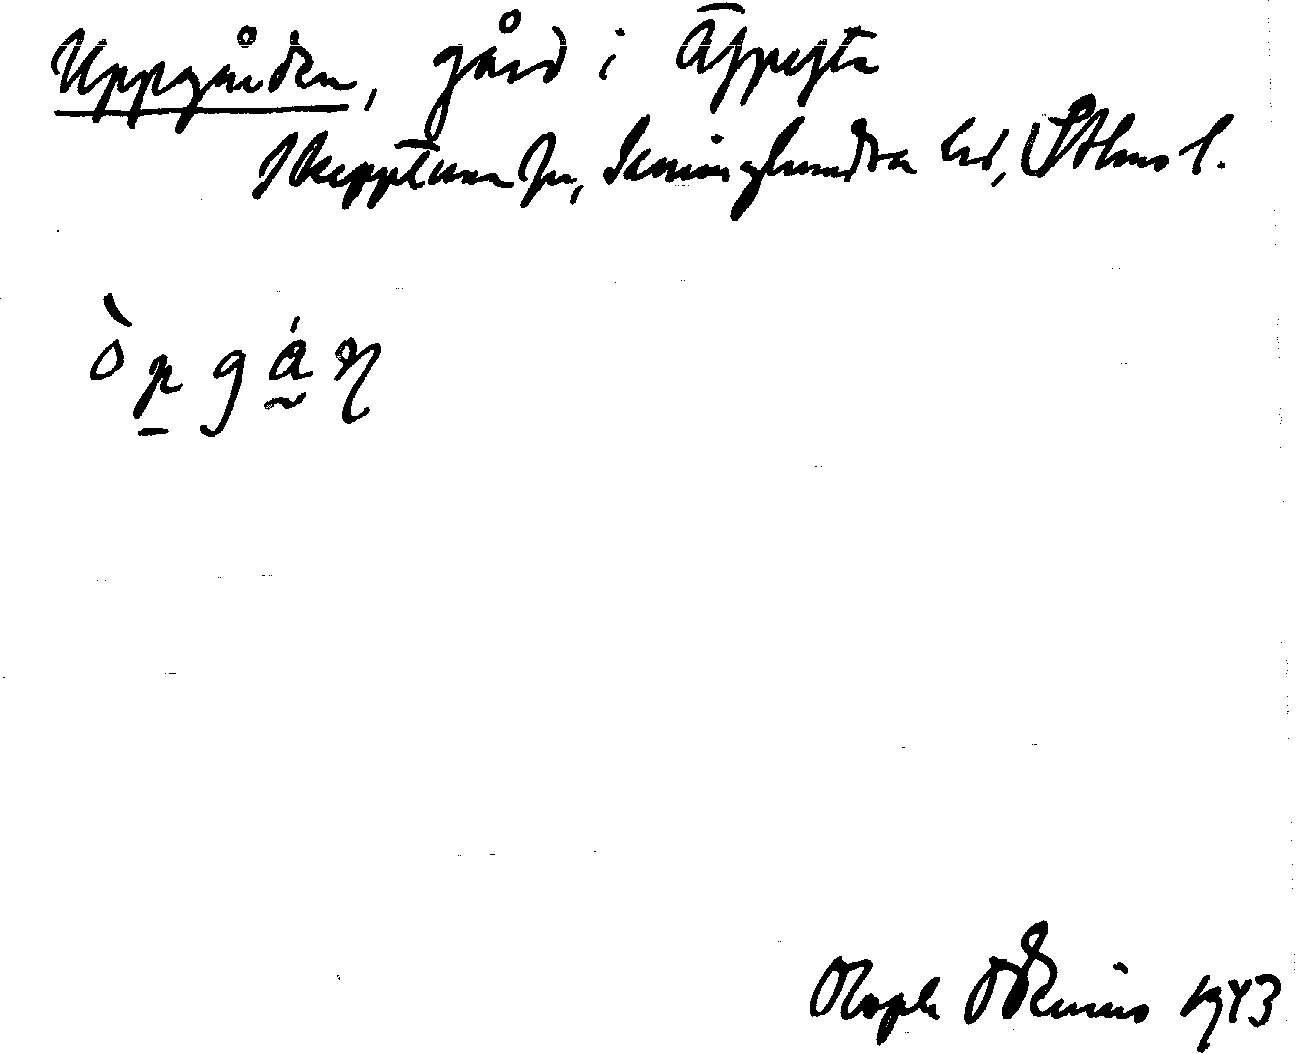 Uppgården, gård i Äppesta
Skepptuna sn, Seminghundra hd, Sthms l.
òp̠gá̰ŋ
Oloph Odenius 1943